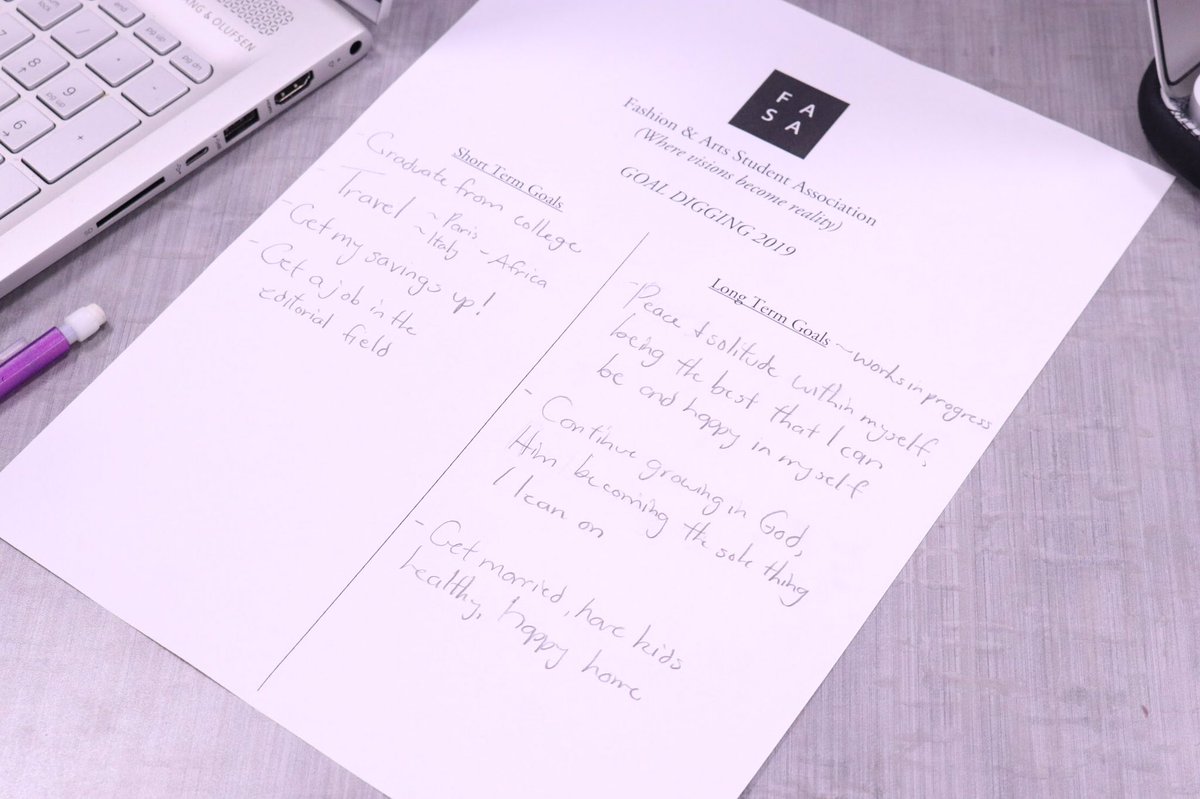 FA
SA
Fashion & Arts Student Association
(Where visions become reality)
GOAL DIGGING 2019
Short Term Goals
- Graduate from college
- Travel ~Paris
~Italy ~Africa
- Get my savings up!
- Get a job in the
editorial field
Long Term Goals ~works in progress
- Peace & solitude within myself,
being the best that I can
be and happy in myself
- Continue growing in God,
Him becoming the sole thing
I lean on
- Get married, have kids
healthy, happy home
& OLUFSEN
7
8
9
pg up
6
+
/
*
-
pg up
pg dn
lock